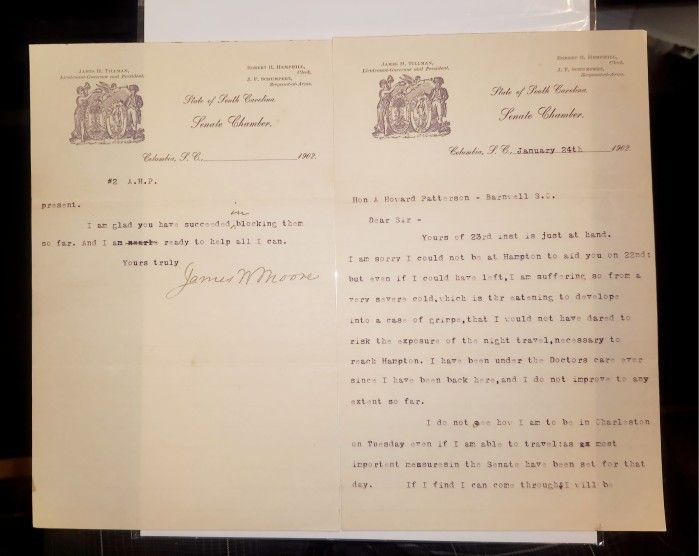 JAMES H. TILLMAN,
Lieutenant-Governor and President.
ROBERT R. HEMPHILL,
Clerk.
J. F. SCHUMPERT,
Sergeant-at-Arms.
State of South Carolina.
Senate Chamber.
Columbia, S. C., 1902.
#2 A.H.P.
present.
I am glad you have succeeded in blocking them
so far. And I am ready to help all I can.
Yours truly
James W Moore
JAMES H. TILLMAN,
Lieutenant-Governor and President.
ROBERT R. HEMPHILL,
Clerk.
J. F. SCHUMPERT,
Sergeant-at-Arms.
State of South Carolina.
Senate Chamber.
Columbia, S. C., January 24th 1902.
Hon A Howard Patterson - Barnwell S.C.
Dear Sir -
Yours of 23rd inst is just at hand.
I am sorry I could not be at Hampton to aid you on 22nd:
but even if I could have left,I am suffering so from a
very severe cold,which is thr eatening to develope
into a case of grippe,that I would not have dared to
risk the exposure of the night travel,necessary to
reach Hampton. I have been under the Doctors care ever
since I have been back here,and I do not improve to any
extent so far.
I do not see how I am to be in Charleston
on Tuesday even if I am able to travel:as most
important measuresin the Senate have been set for that
day. If I find I can come through,I will be